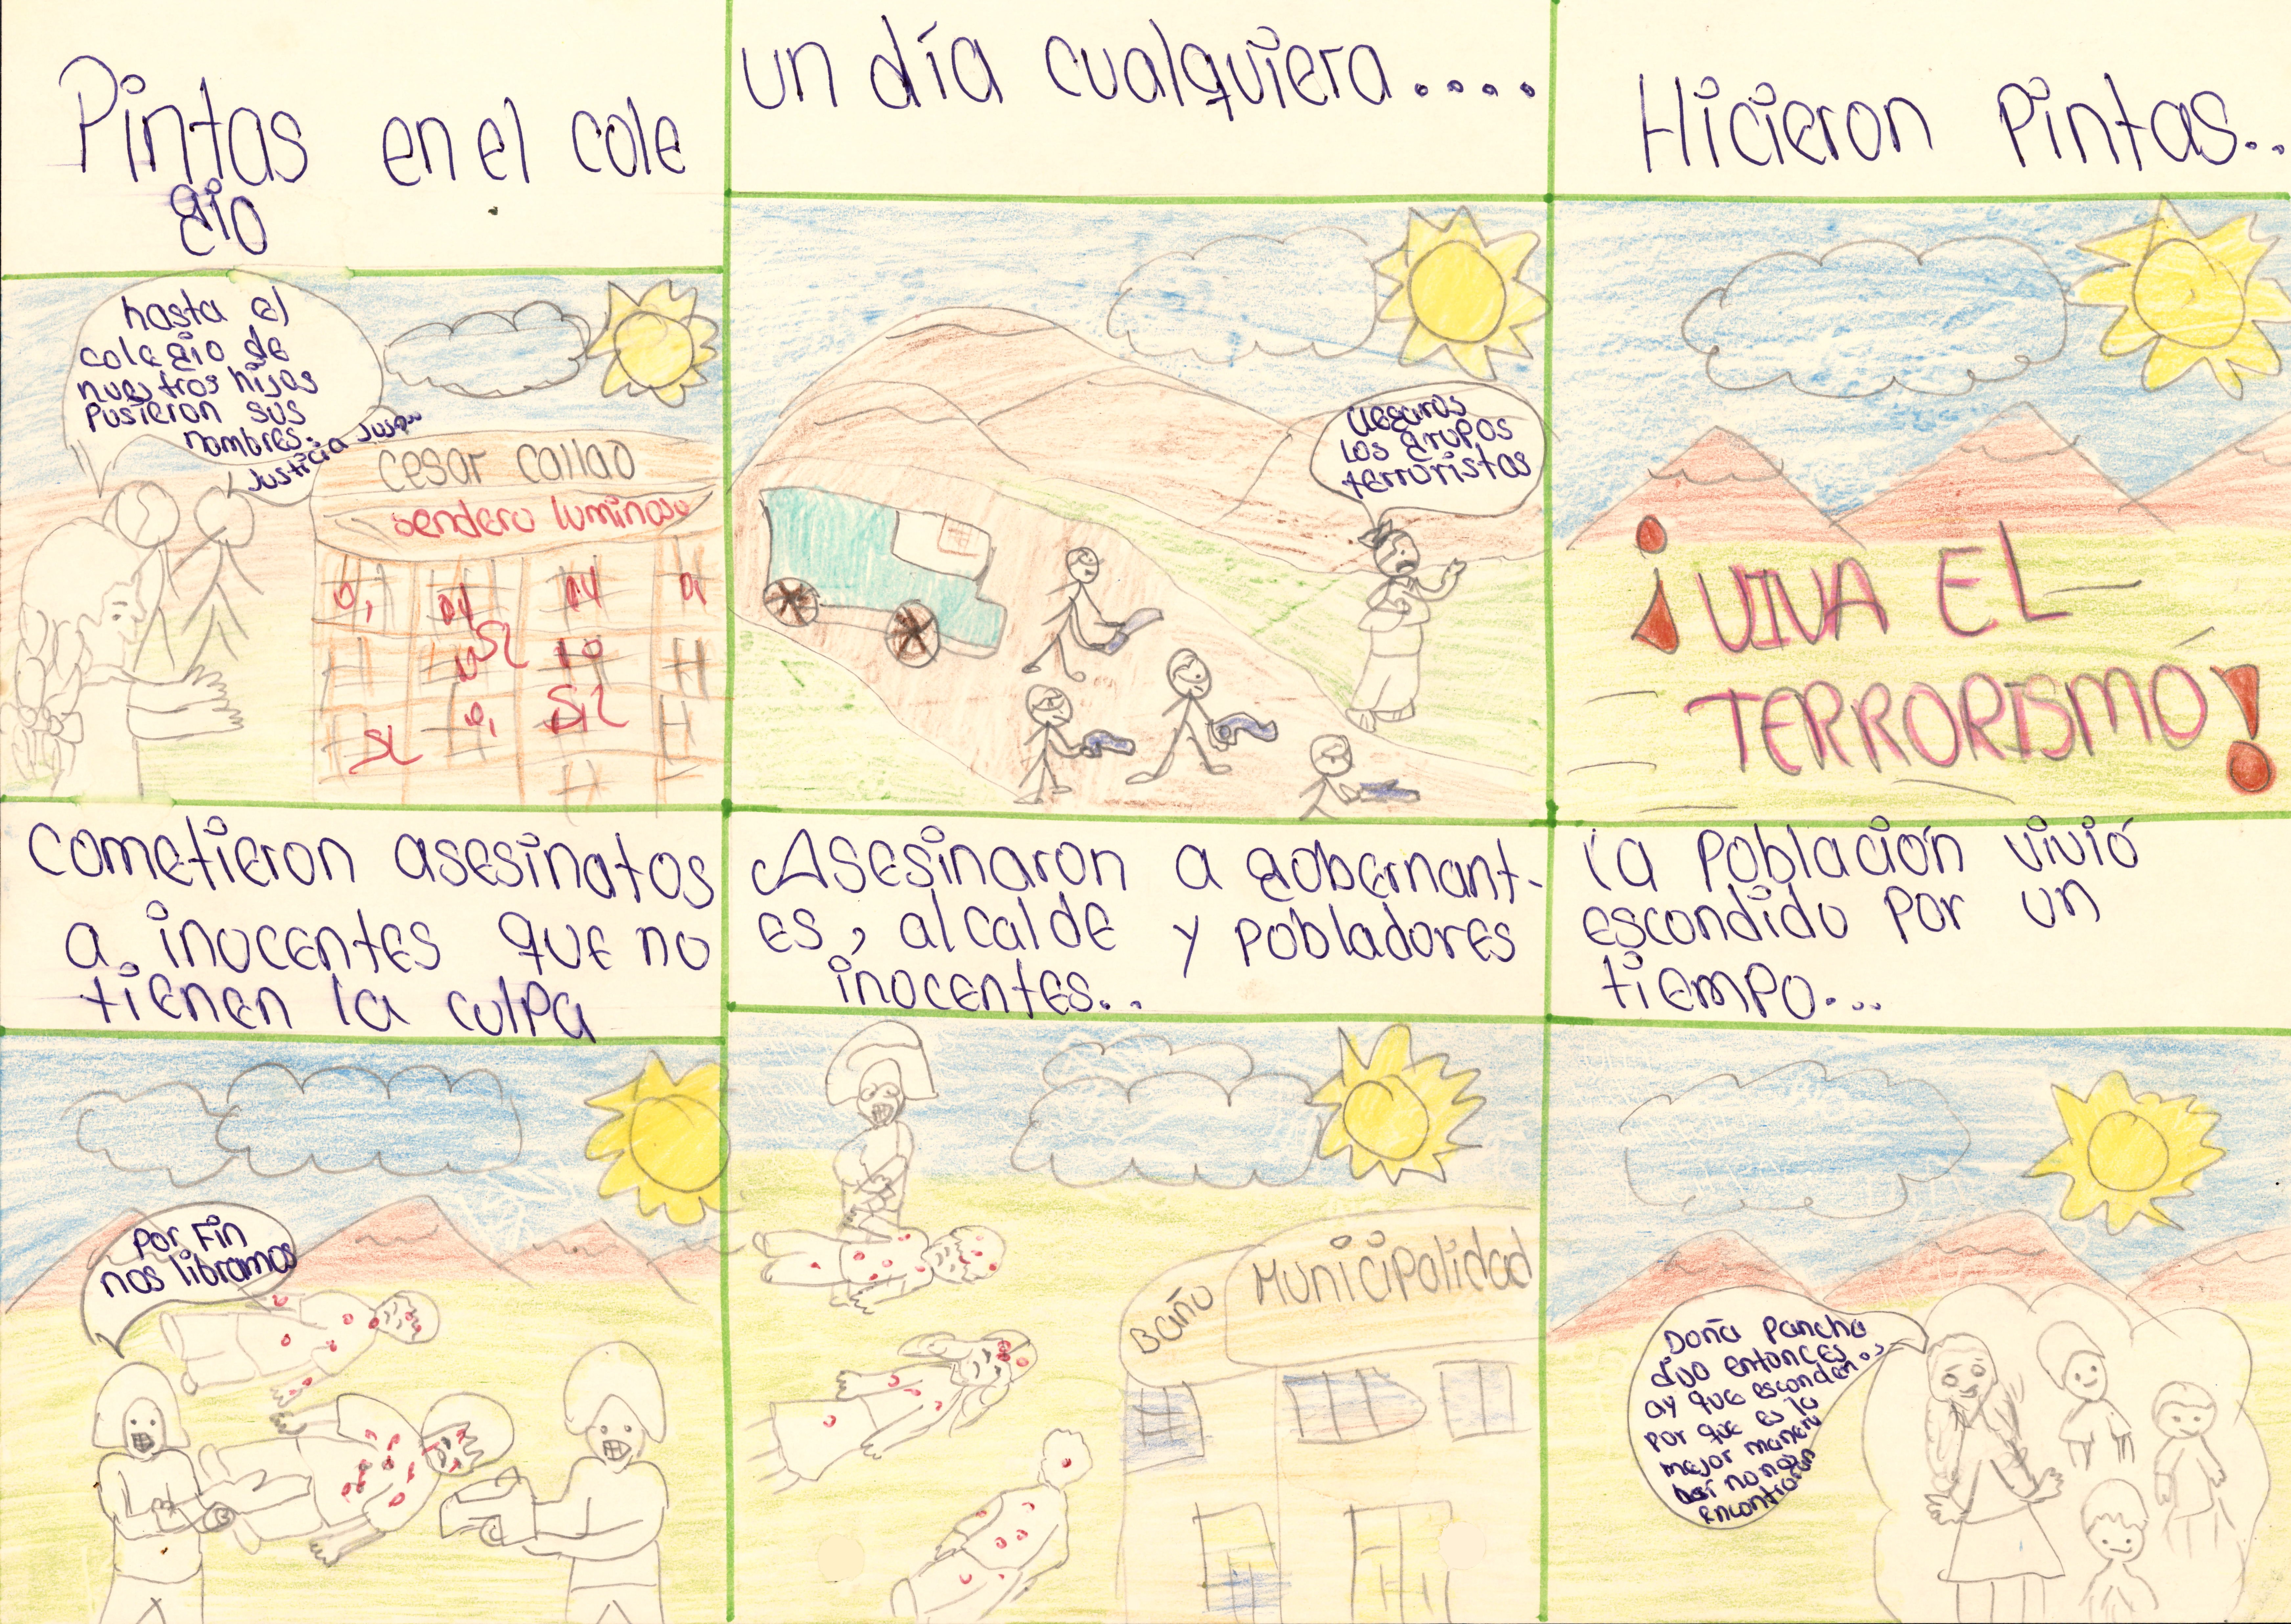 Pintas en el cole
gio
hasta el
colegio de
nuestros hijos
Pusieron sus
nombres.
Justicia Jus...
cesar callao
sendero luminoso
SL
SL
SL
un día cualquiera....
llegaros
los grupos
terroristas
Hicieron Pintas..
¡VIVA EL
TERRORISMO!
cometieron asesinatos
a inocentes que no
tienen la culpa
Por Fin
nos libramos
Asesinaron a gobernant-
es, alcalde y pobladores
inocentes...
Baño
Municipalidad
la Población vivió
escondido por un
tiempo...
Doña Pancha
dijo entonces
ay que esconder..
por que es la
mejor manera
así no nos
encontraran